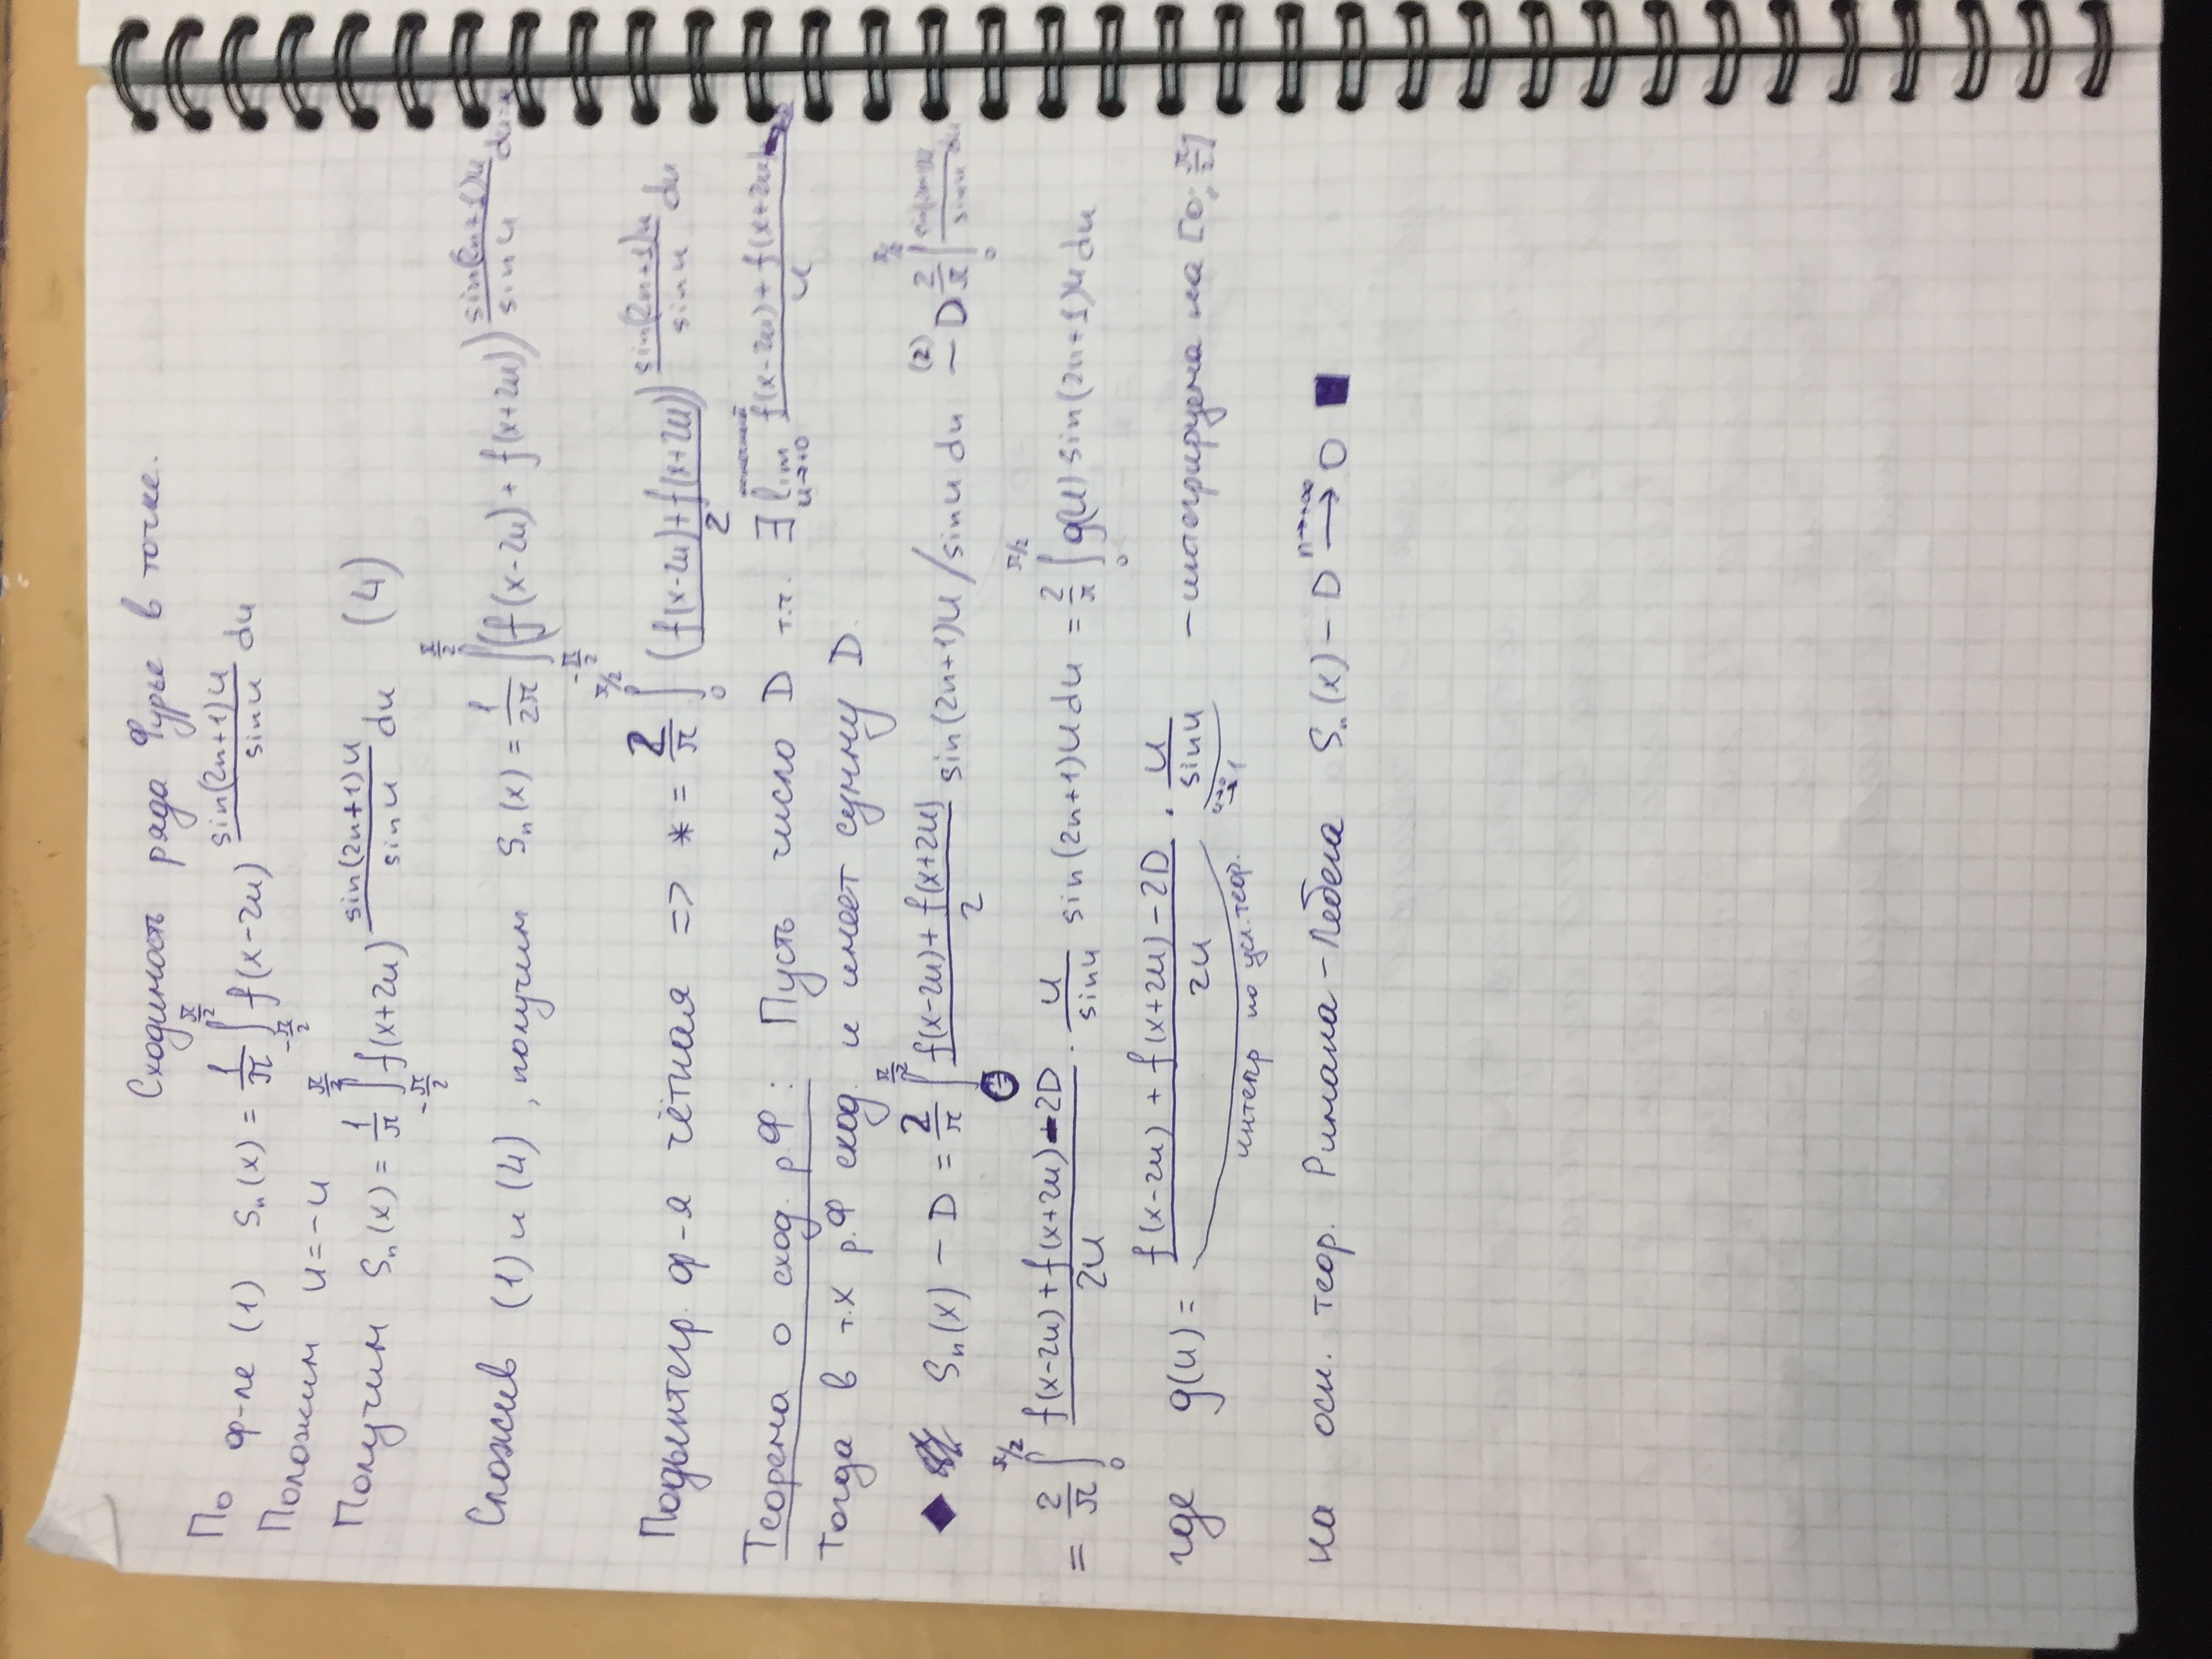 Сходимость ряда Фурье в точке.
По ф-ле (1) Sₙ(x) = 1/π ∫_{-π/2}^{π/2} f(x-2u) sin(2n+1)u / sinu du
Положим u = -u
Получим Sₙ(x) = 1/π ∫_{-π/2}^{π/2} f(x+2u) sin(2n+1)u / sinu du (4)
Сложив (1) и (4), получим Sₙ(x) = 1/2π ∫_{-π/2}^{π/2} (f(x-2u) + f(x+2u)) sin(2n+1)u / sinu du =
Подынтегр. ф-я чётная => * = 2/π ∫_0^{π/2} (f(x-2u)+f(x+2u))/2 sin(2n+1)u / sinu du
Теорема о сход. р.Ф: Пусть число D т.ч. ∃ конечный lim_{u→+0} f(x-2u) + f(x+2u) / u
Тогда в т.x р.Ф сход. и имеет сумму D.
◆ Sₙ(x) - D = 2/π ∫_0^{π/2} (f(x-2u)+f(x+2u))/2 sin(2n+1)u / sinu du (2) - D 2/π ∫_0^{π/2} sin(2n+1)u / sinu du
= 2/π ∫_0^{π/2} (f(x-2u)+f(x+2u)-2D)/2u · u/sinu sin(2n+1)u du = 2/π ∫_0^{π/2} g(u) sin(2n+1)u du
где g(u) = (f(x-2u) + f(x+2u) - 2D)/2u · u/sinu - интегрируема на [0; π/2]
интегр по усл. теор. u→0 → 1
на осн. теор. Римана-Лебега Sₙ(x) - D n→+∞ → 0 ■